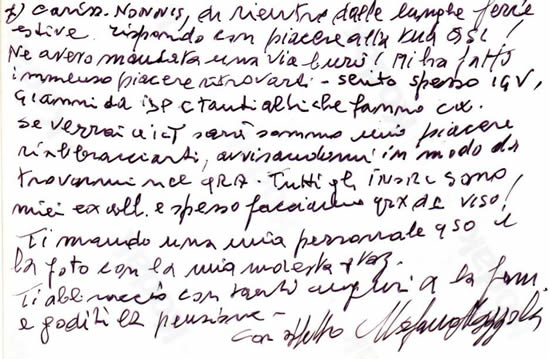 Cariss. Nonnis, di rientro dalle lunghe ferie
estive. rispondo con piacere alla tua QSL!
Ne avevo mandata una via buro! Mi ha fatto
immenso piacere ritrovarti - sento spesso IGV,
Gianni da ISP c tanti altri che fanno cx.
se verrai a ICT sarà sommo mio piacere
riabbracciarti, avvisandomi in modo da
trovarmi nel QRA. Tutti gli sono
miei ex all. e spesso facciamo QRX de viso!
Ti mando una mia personale QSO e
la foto con la mia modesta
Ti abbraccio con tanti auguri a la fam.
e goditi la pensione -
con affetto